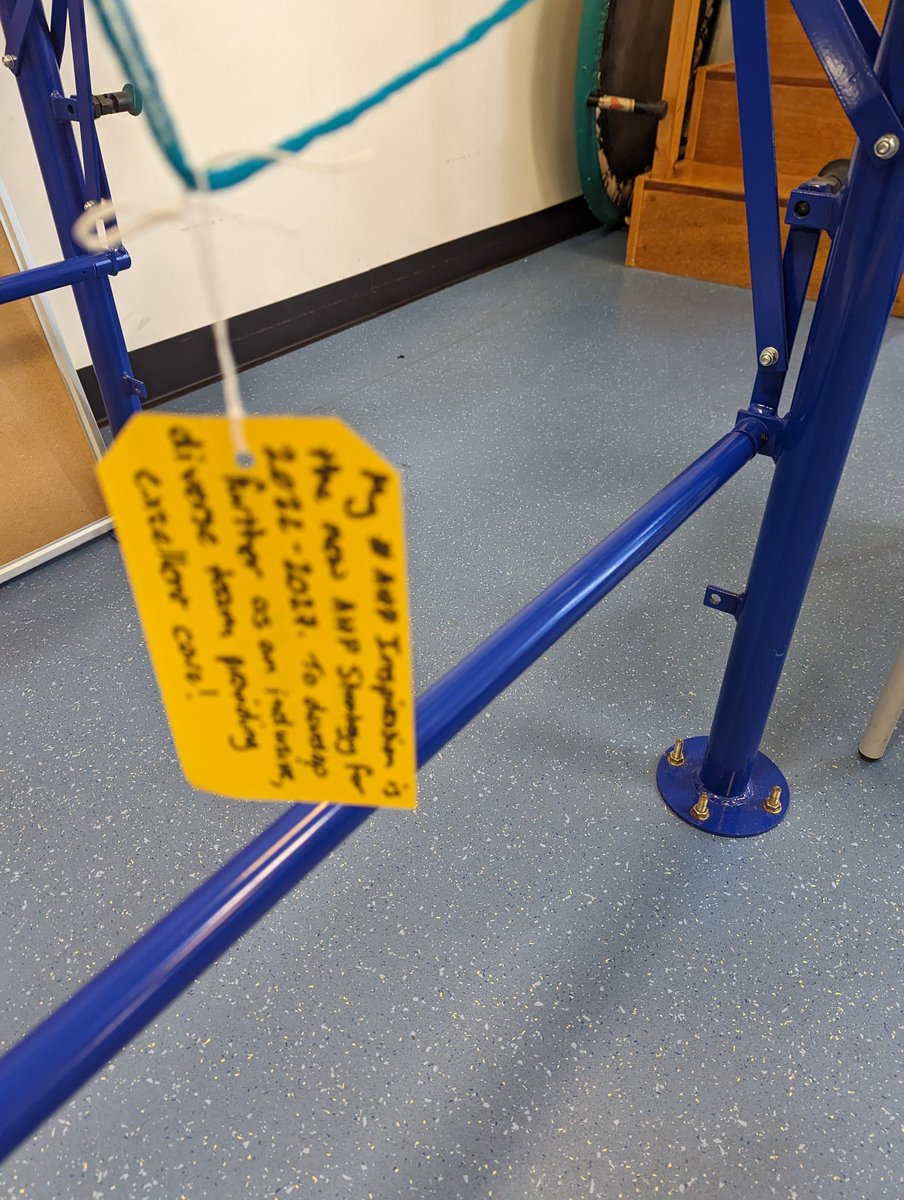 My #AHP Inspiration is
the new AHP Strategy for
2022-2027. To develop
further as an inclusive,
diverse team providing
excellent care!